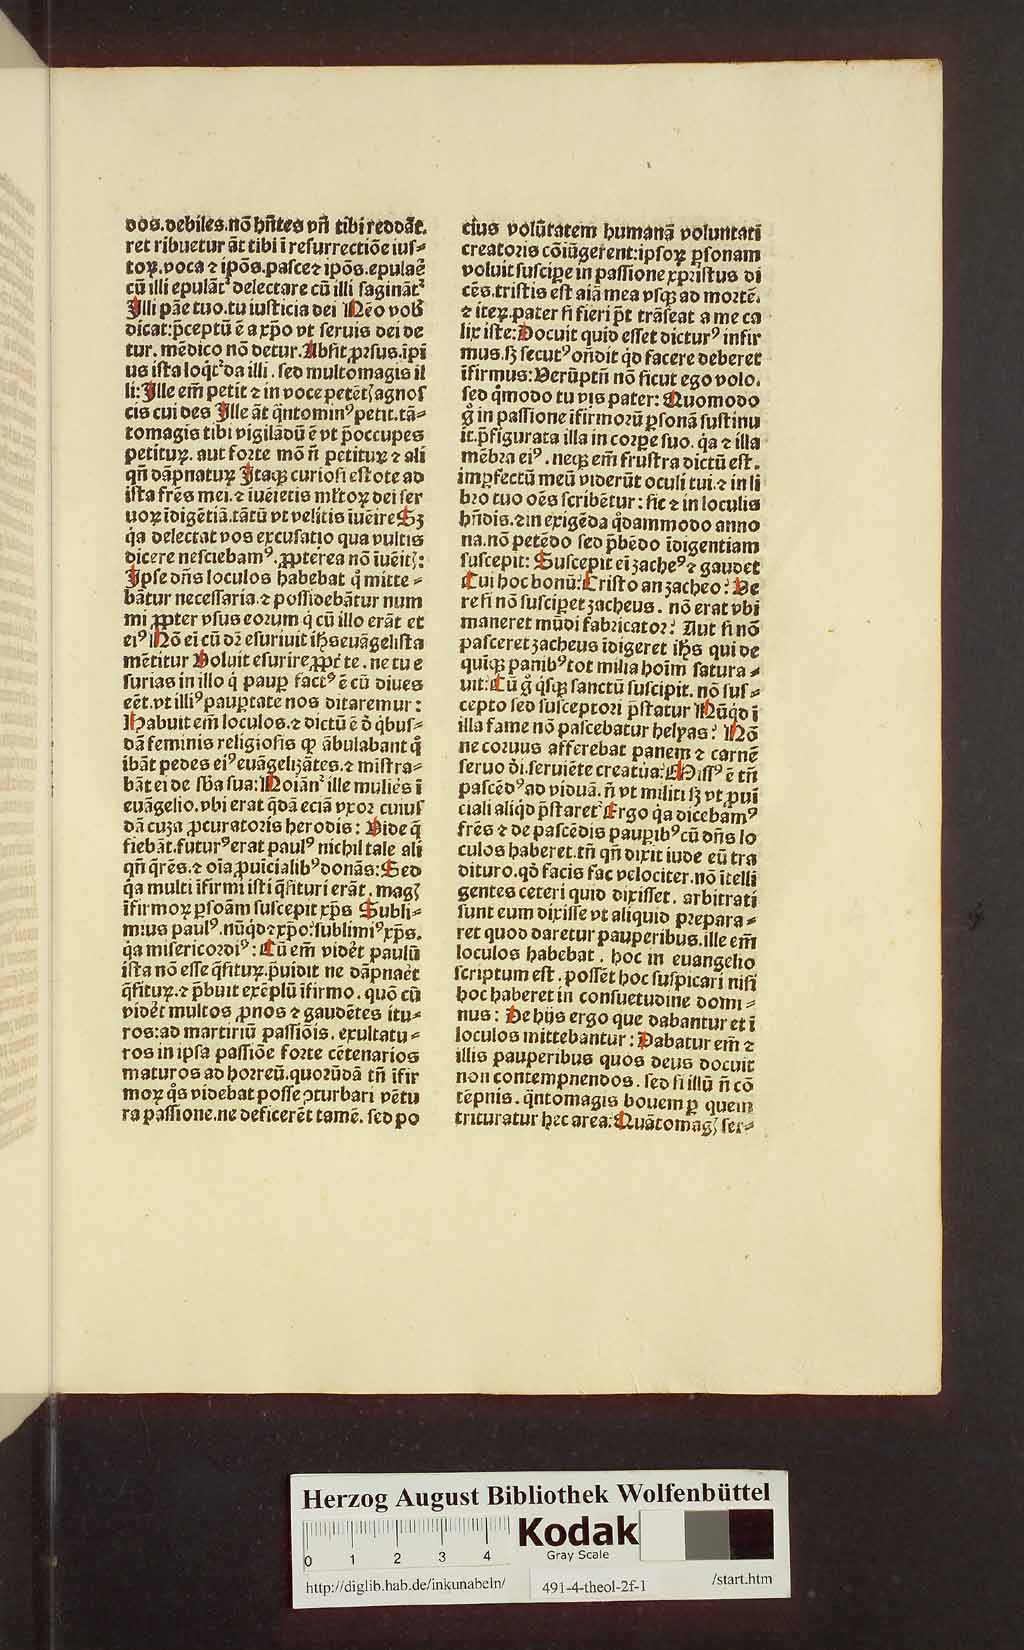 dos.debiles.nō hn̄tes vn̄ tibi reddāt.
ret ribuetur āt tibi ī resurrectiōe ius⸗
toꝝ.voca ⁊ ip̄os.pasce ⁊ ip̄os.epulaē
cū illi epulāt᷑ delectare cū illi sagināt᷑
Illi pāe tuo.tu iusticia dei Nēo vob̄
dicat:p̄ceptū ē a xp̄o vt seruis dei de
tur. mēdico nō detur.Absit ꝓrsus.īpī
us ista loqͥt᷑ da illi . sed multomagis il
li:Ille em̄ petit ⁊ in voce petēt agnos
cis cui des Ille āt q̄ntominꝰ petit.tā⸗
tomagis tibi vigilādū ē vt p̄occupes
petituꝝ. aut forte mō n̄ petituꝝ ⁊ ali
qn̄ dāpnatuꝝ Itaqꝫ curiosi estote ad
ista fr̄es mei.⁊ iuēietis ml̄toꝝ dei ser
uoꝝ īdigētiā.tātū vt velitis iuēire Sꝫ
qͣ delectat vos excusatio qua vultis
dicere nesciebamꝰ.ꝓpterea nō iuēit:
Ipse dn̄s loculos habebat qͦ mitte ⸗
bātur necessaria.⁊ possidebātur num
mi ꝓpter vsus eorum qͥ cū illo erāt et
eiꝰ Nō ei cū dr̄ esuriuit ih̄s euāgelista
mētitur Voluit esurire ꝓpt̄ te . ne tu e
surias in illo qͥ paup̄ factꝰ ē cū diues
eēt.vt illiꝰ paup̄tate nos ditaremur :
Habuit em̄ loculos.⁊ dictū ē ꝺ̄ qͥbus⸗
dā feminis religiosis qꝫ ābulabant qͦ
ibāt pedes eiꝰ euāgelizātes.⁊ mistra⸗
bāt ei de sb̄a sua:Noīan᷑ ille mulieꝭ ī
euāgelio.vbi erat qͥdā eciā vxor cuius
dā cuza ꝓcuratoris herodis : Vide q̄
fiebāt.futurꝰ erat paulꝰ nichil tale ali
qn̄ qͥrēs.⁊ oīa ꝓuīcialibꝰ donās:Sed
qͣ multi īfirmi isti q̄situri erāt . magꝭ
īfirmoꝝ ꝑsoām suscepit xp̄s Subli⸗
mius paulꝰ. nūqͥd ⁊ xp̄o:sublimiꝰ xp̄s.
qͣ misericordiꝰ : Cū em̄ videt paulū
ista nō esse q̄situꝝ.p̄uidit ne dāpnaēt
q̄situꝝ.⁊ p̄buit exēplū īfirmo. quō cū
videt multos ꝓnos ⁊ gaudētes itu⸗
ros:ad martiriū passiōis. exultatu⸗
ros in ipsa passiōe forte cētenarios
maturos ad horreū.quorūdā tn̄ īfir
moꝝ qͦs videbat posse ꝯturbari vētu
ra passione.ne deficerēt tamē. sed po
cius volūtatem humanā voluntati
creatoris cōiūgerent:ipsoꝝ ꝑsonam
voluit suscipe in passione xpristus di
cēs.tristis est aīa mea vsqꝫ ad mortē.
⁊ iteꝝ.pater si fieri pt̄ trāseat a me ca
lix iste:Docuit quid esset dicturꝰ infir
mus.sꝫ secutꝰ on̄dit qͥd facere deberet
īfirmus:Verūptn̄ nō sicut ego volo.
sed qͦmodo tu vis pater: Quomodo
gͦ in passione īfirmorū ꝑsonā sustinu
it.p̄figurata illa in corpe suo. qͣ ⁊ illa
mēbra eiꝰ . neqꝫ em̄ frustra dictū est.
imꝑfectū meū viderūt oculi tui.⁊ in li
bro tuo oēs scribētur : sic ⁊ in loculis
hn̄dis.⁊ in exigēda qͦdammodo anno
na.nō petēdo sed p̄bēdo īdigentiam
suscepit: Suscepit eī zacheꝰ ⁊ gaudet
Cui hoc bonū:Cristo an zacheo: Ve
re si nō suscipet zacheus . nō erat vbi
maneret mūdi fabricator: Aut si nō
pasceret zacheus īdigeret ih̄s qui de
quiqꝫ panibꝰ tot milia hoīm satura⸗
uit:Cū gͦ qͥsqꝫ sanctū suscipit. nō sus⸗
cepto sed susceptori p̄statur Nūqͥd ī
illa fame nō pascebatur helyas: Nō
ne coruus afferebat panem ⁊ carnē
seruo ꝺ̄i.seruiēte creatura:Missꝰ ē tn̄
pascēdꝰ ad viduā.n̄ vt militi sꝫ vt ꝓuī
ciali aliqͥd p̄staret Ergo qͣ dicebamꝰ
fr̄es ⁊ de pascēdis paupibꝰ cū dn̄s lo
culos haberet.tn̄ qn̄ dixit iude eū tra
dituro.qd̄ facis fac velociter.nō ītelli
gentes ceteri quid dixisset. arbitrati
sunt eum dixisse vt aliquid prepara⸗
ret quod daretur pauperibus.ille em̄
loculos habebat . hoc in euangelio
scriptum est . posset hoc suspicari nisi
hoc haberet in consuetudine domi⸗
nus : De hijs ergo que dabantur et ī
loculos mittebantur : Dabatur em̄ ⁊
illis pauperibus quos deus docuit
non contempnendos . sed si illū n̄ cō
tēpnis . qͥntomagis bouem ꝑ quem
trituratur hec area:Quātomagꝭ ser⸗
Herzog August Bibliothek Wolfenbüttel
0 1 2 3 4
Kodak
Gray Scale
http://diglib.hab.de/inkunabeln/ 491-4-theol-2f-1 /start.htm